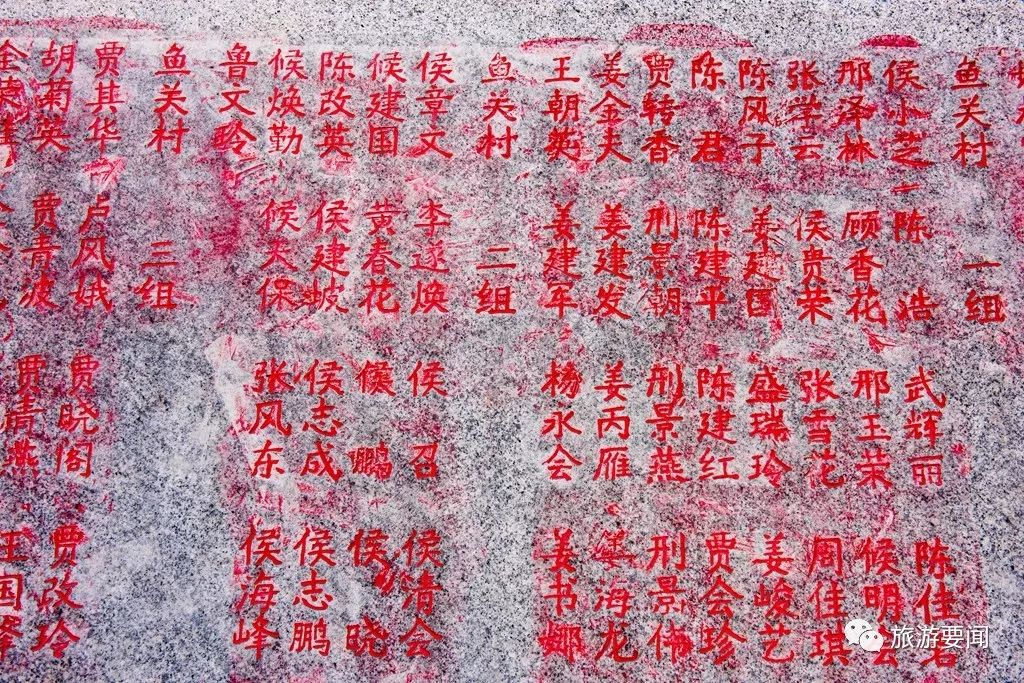 鱼关村 一组
侯小芝 陈浩 武辉丽 陈佳
邢泽林 顾香花 邢王荣 候明
张学云 侯贵荣 张雪花 周佳琪
陈风子 姜建国 盛瑞玲 姜峻艺
陈君 陈建平 陈建红 贾会珍
贾转香 刑景朝 刑景燕 刑景伟
姜金夫 姜建发 姜丙雁 姜海龙
王朝英 姜建军 杨永会 姜书娜
鱼关村 二组
侯章文 李遂焕 侯召 侯清会
候建国 黄春花 鹏 侯晓
陈改英 侯建坡 侯志成 侯志鹏
候焕勤 候天保 张风东 侯海峰
鲁文玲
鱼关村 三组
贾其华 卢风娥 贾晓阁 贾改玲
胡菊英 贾青波 贾青燕 王国峰
旅游要闻